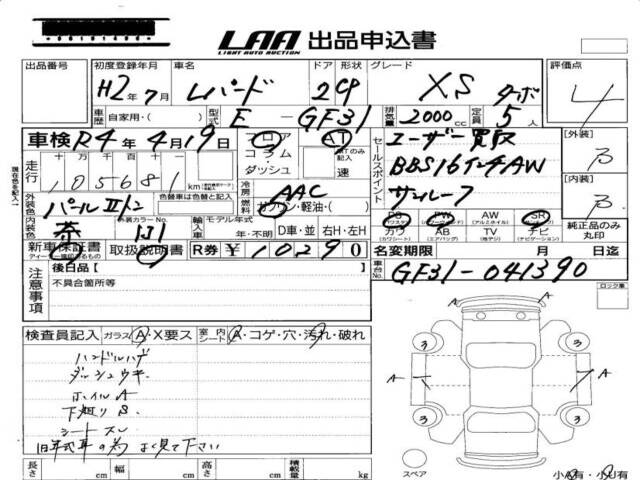 LAA 出品申込書
LIGHT AUTO AUCTION
出品番号
初度登録年月 車名 ドア 形状 グレード 評価点
H2年7月 レパード 2 CP XS ターボ 4
車歴 自家用・( ) 型式 E - GF31 排気量 2000cc 定員 5人
車検 R4年4月19日 フロア AT
コラム
ダッシュ 速
走行 105681 km
セールスポイント
ユーザー買取
BBS16インチAW
サンルーフ
[外装] B
[内装] B
外装色 パールⅡトン 色替車は色替と記入
冷房 AAC
燃料 ガソリン・軽油・( )
内装色 茶 外装カラーNo. 輸入車 モデル年式 年・不明 D車・並 右H・左H
PS PW AW SR
カワ AB TV ナビ
純正品のみ丸印
新車保証書 取扱説明書 R券 ¥10290
名変期限 月 日迄
車台No. GF31-041390
注意事項 後日品〔 〕
不具合箇所等
ロック車
検査員記入 ガラス A・X要ス 室内シート A・コゲ・穴・汚れ・破れ
ハンドルハゲ
ダッシュウキ
ホイルA
下廻りS
シートスレ
旧年式車の為 よく見て下さい
A
3 3
A A
3 3
スペア
小A有・小U有
長さ cm 幅 cm 高さ cm 積載量 kg
現在色を記入